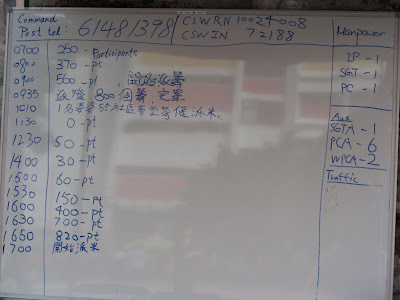 Command
Post tel: 61481398
CSWRN 10024008
CSWIN 72188
0700 250-Participants
0800 370-pt
0900 500-pt, 開始派籌
0935 派發800個籌, 完畢
1010
1130 10-pt
1230 50-pt
1400 30-pt
1500 60-pt
1530 150-pt
1600 400-pt
1630 700-pt
1650 820-pt
1700 開始派米
Manpower
IP-1
SGT-1
PC-1
Aux
SGTA-1
PCA-6
WPCA-2
Traffic